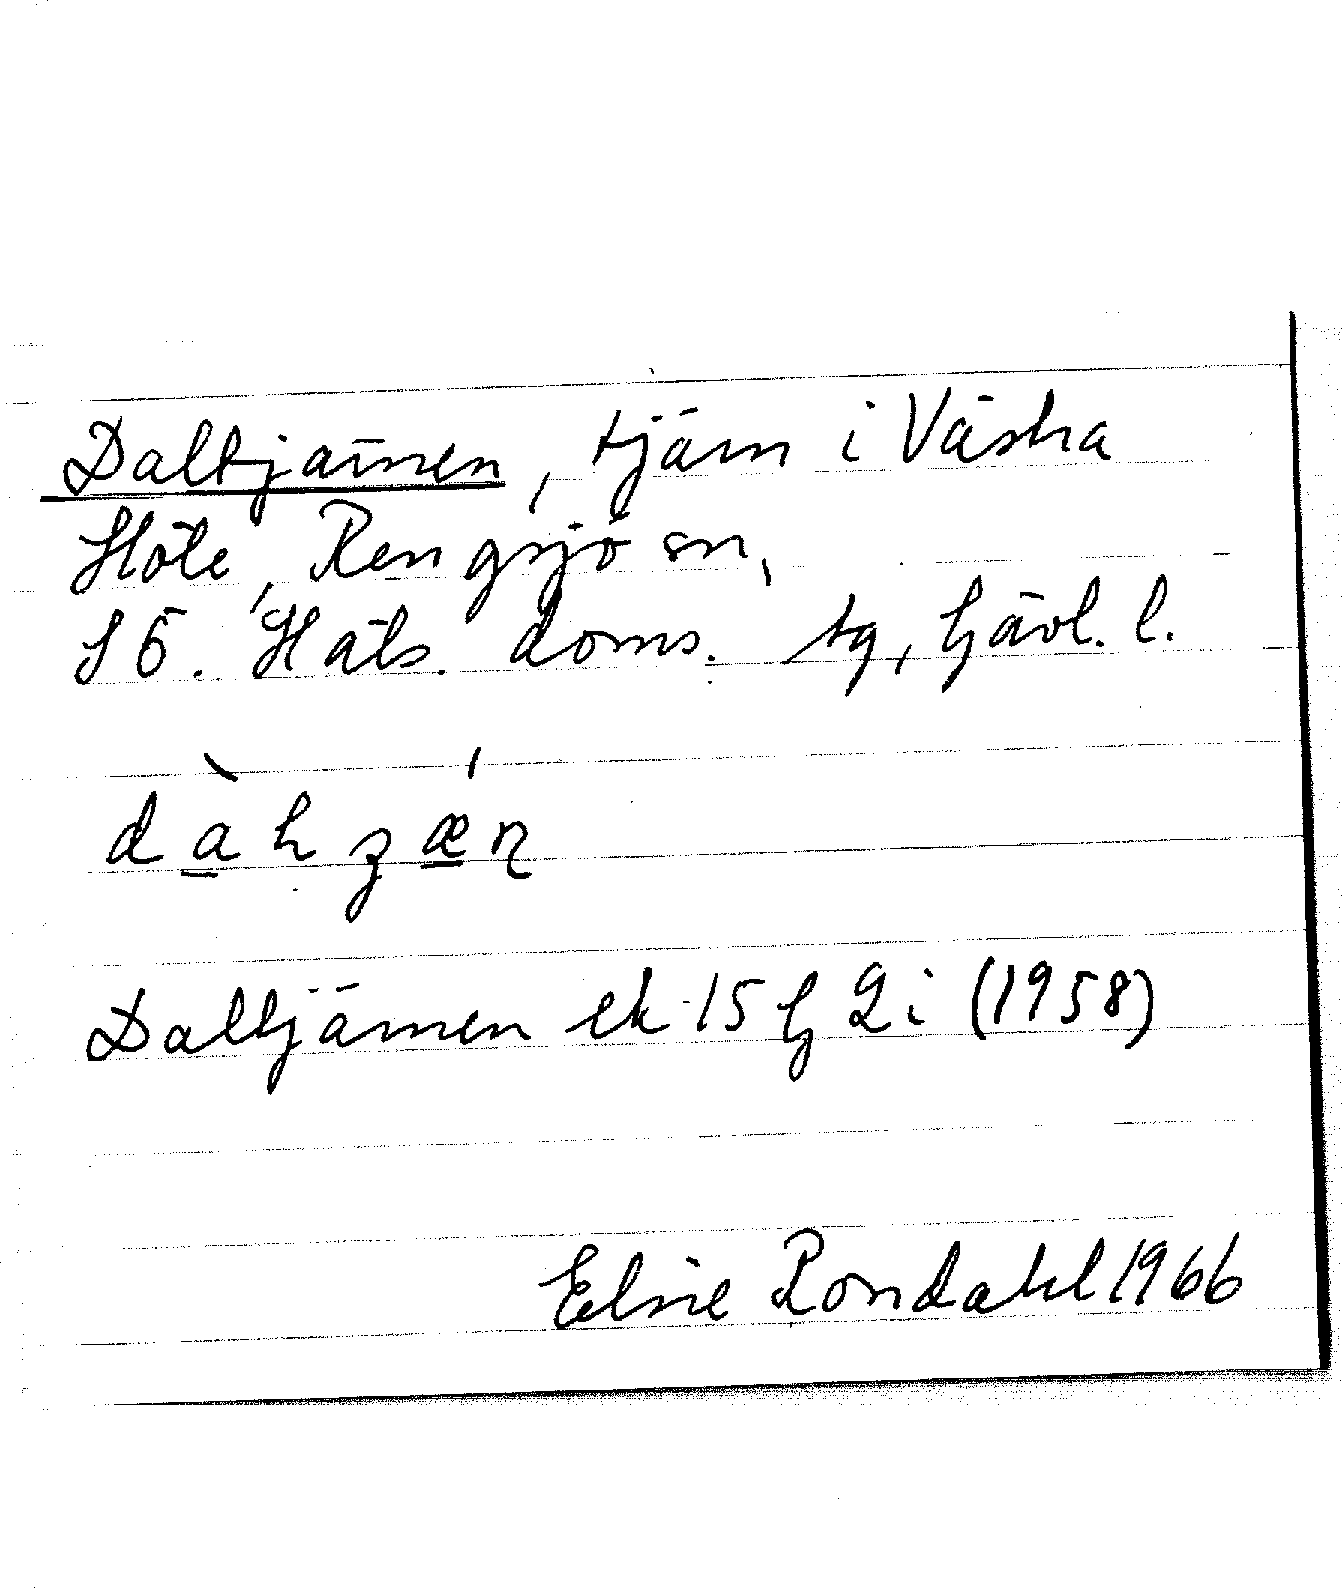 Daltjärnen, tjärn i Västra
Höle, Rengsjö sn,
SÖ. Häls. doms. tg, Gävl. l.
Daltjärnen ek 15 G 2 i (1958)
Elsie Rondahl 1966